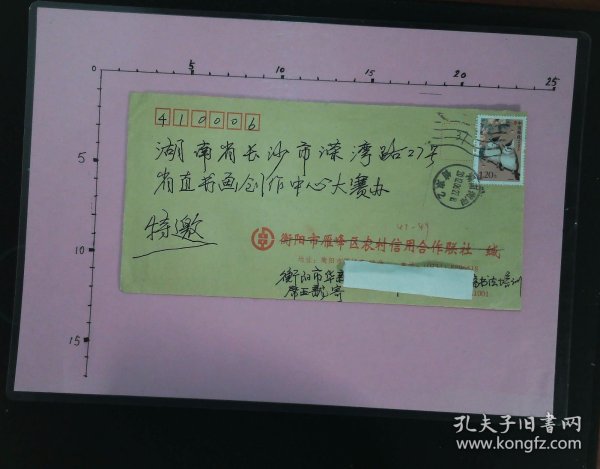 0 5 10 15 20 25
5
10
15
410006
湖南省长沙市溁湾路27号
省直书画创作中心大赛办
特邀
47-49
衡阳市雁峰区农村信用合作联社 缄
地址:衡阳市
衡阳市华
书法培训
寄
001
1.20元
孔夫子旧书网
www.kongfz.com